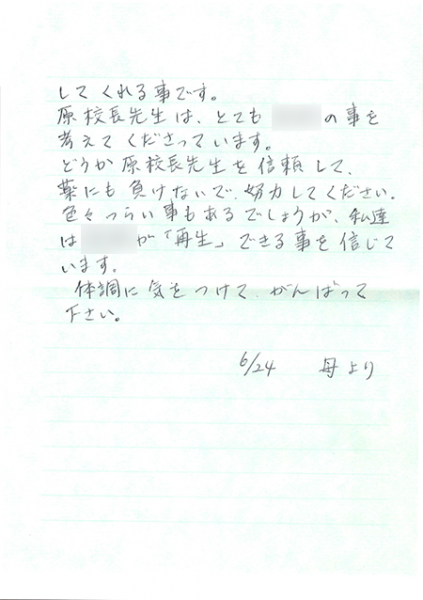 してくれる事です。
原校長先生は、とても の事を
考えてくださっています。
どうか原校長先生を信頼して、
薬にも負けないで、努力してください。
色々つらい事もあるでしょうが、私達
は が「再生」できる事を信じて
います。
体調に気をつけて、がんばって
下さい。
6/24 母より